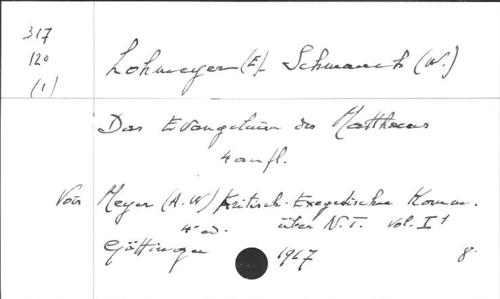 317
120
(1)
Lohmeyer (E)_ Schmauch (W.)
Das Evangelium des Matthaeus
4 aufl.
Voir Meyer (A.W) Kritisch-Exegetischer Komm.
4e ed. über N.T. vol. I 1
Göttingen 1967 8.